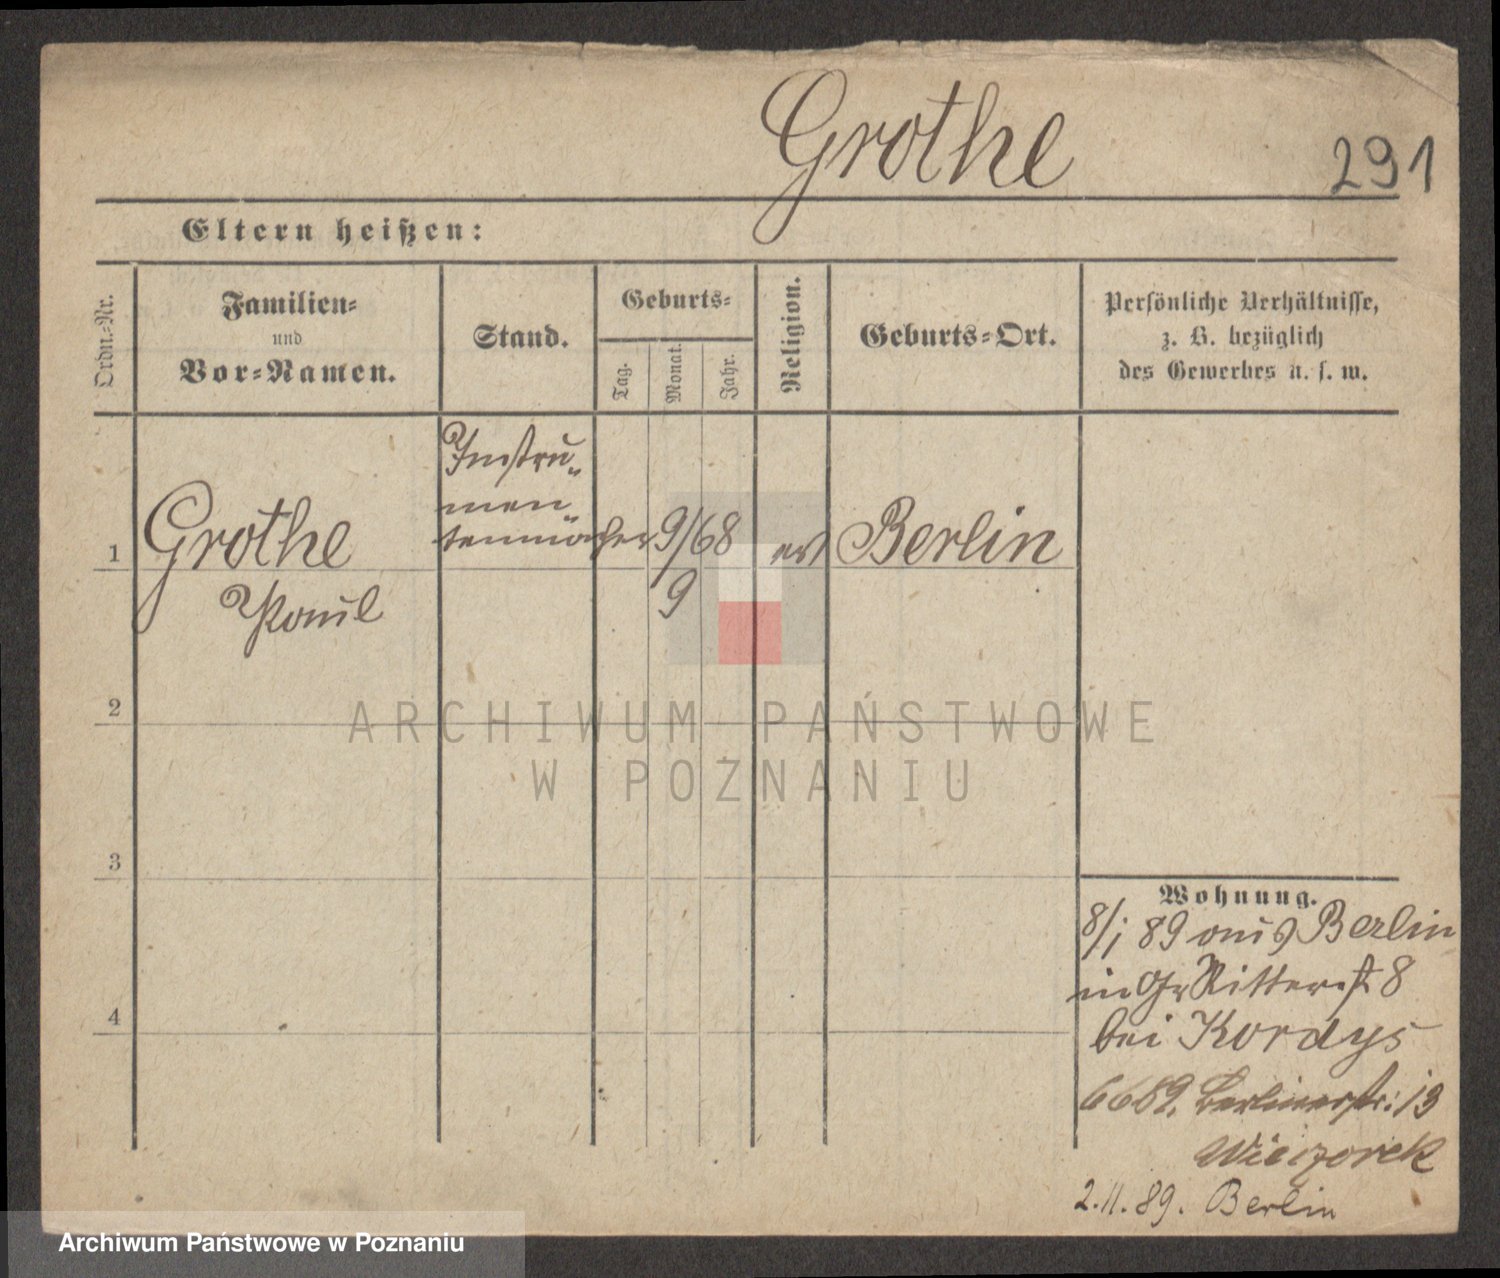 Grothe
291
Eltern heißen:
Ordn.-Nr.
Familien-
und
Vor-Namen.
Stand.
Geburts-
Tag.
Monat.
Jahr.
Religion.
Geburts-Ort.
Persönliche Verhältnisse,
z. B. bezüglich
des Gewerbes u. s. w.
Instru-
men-
tenmacher
1
Grothe
9/68
9
ev
Berlin
Paul
2
ARCHIWUM PAŃSTWOWE
W POZNANIU
3
Wohnung.
8/1 89 aus Berlin
in Gr Ritterst 8
bei Kordys
4
6689. Berlinerstr: 13
Wieczorek
2.11.89. Berlin
Archiwum Państwowe w Poznaniu